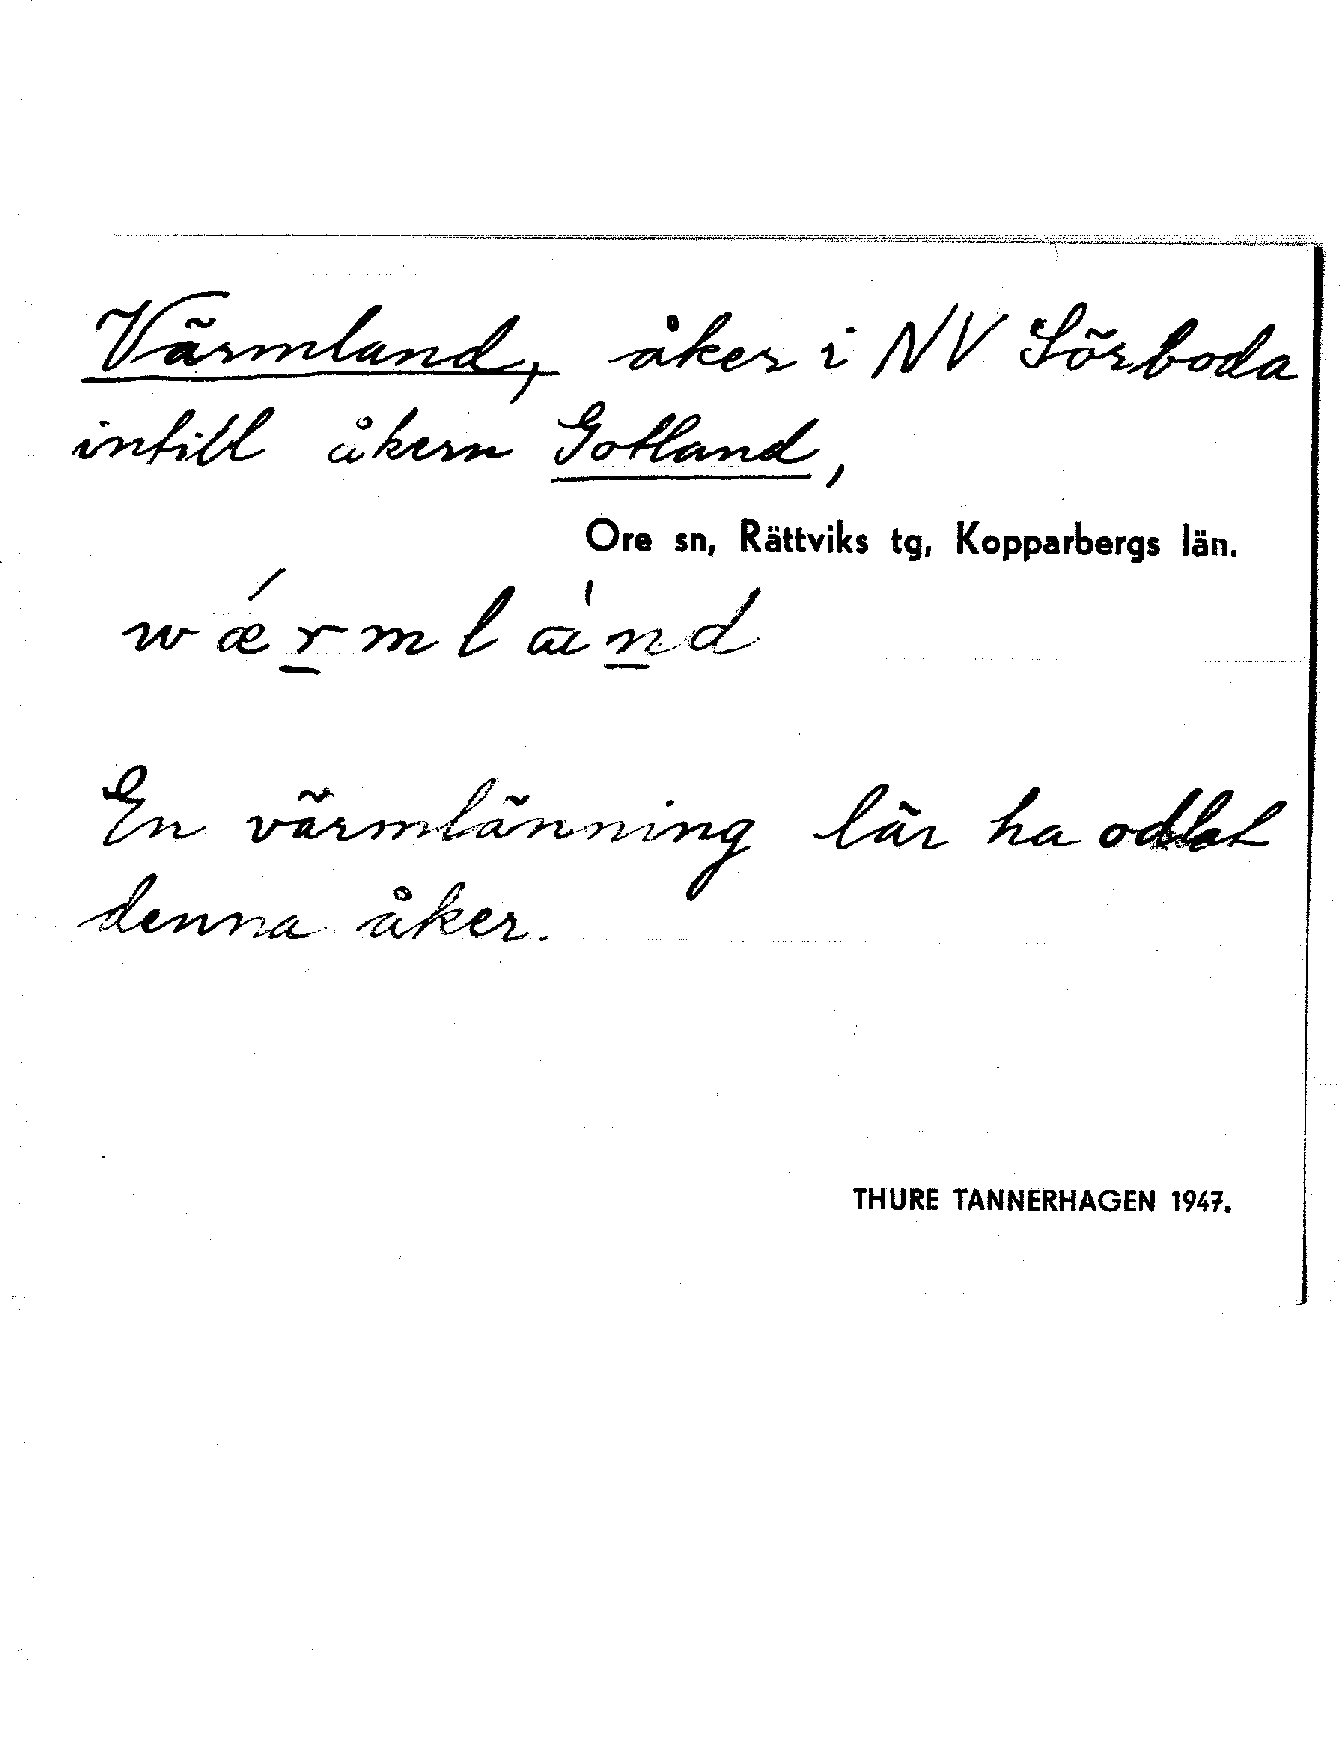 Värmland, åker i NV Sörboda
intill åkern Gotland,
Ore sn, Rättviks tg, Kopparbergs län.
wǽrmlànd
En värmlänning lär ha odlat
denna åker.
THURE TANNERHAGEN 1947.